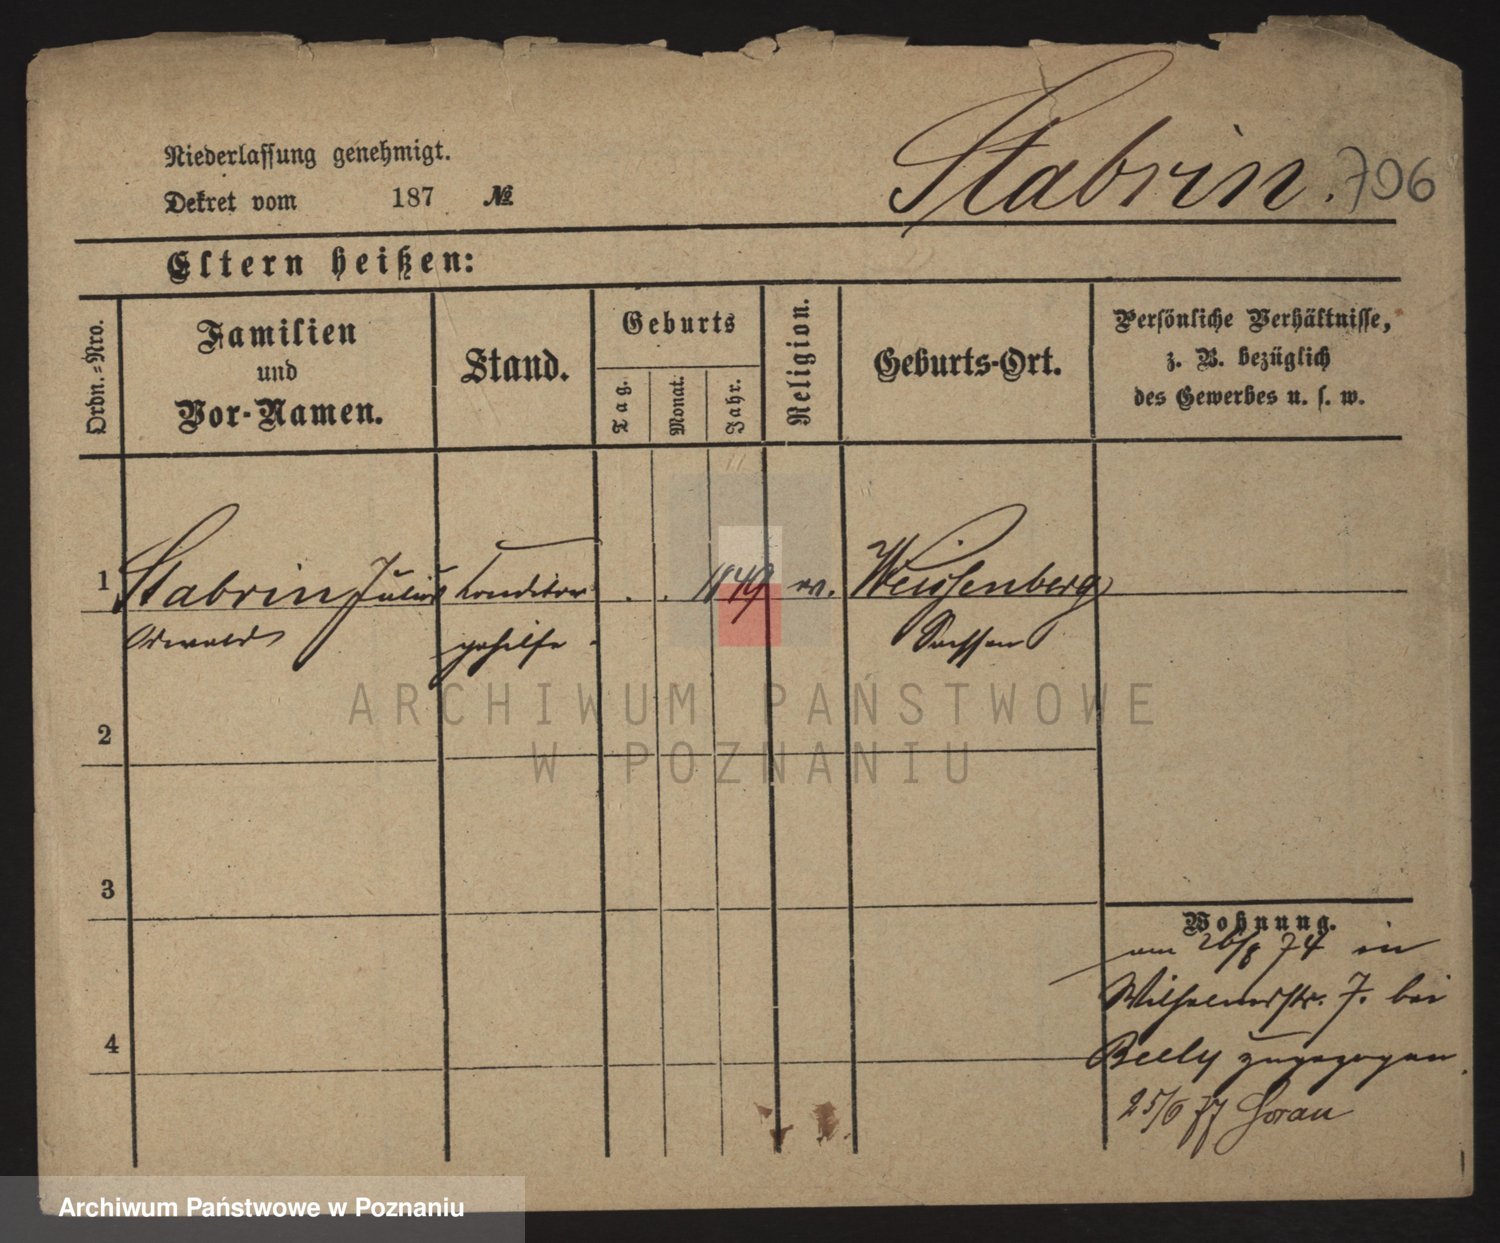 Niederlassung genehmigt.
Dekret vom 187 №
Stabrin. 706
Eltern heißen:
Ordn.-Nro.
Familien
und
Vor-Namen.
Stand.
Geburts
Tag.
Monat.
Jahr.
Religion.
Geburts-Ort.
Persönliche Verhältnisse,
z. B. bezüglich
des Gewerbes u. s. w.
1 Stabrin Julius Conditor . . 1849 ev. Weissenberg
Oswald gehilfe. Sachsen
2
3
4
Wohnung.
am 26/8 74 in
Wilhelmstr. 7. bei
Beely zugezogen.
25/6 77 Sorau
ARCHIWUM PAŃSTWOWE
W POZNANIU
Archiwum Państwowe w Poznaniu